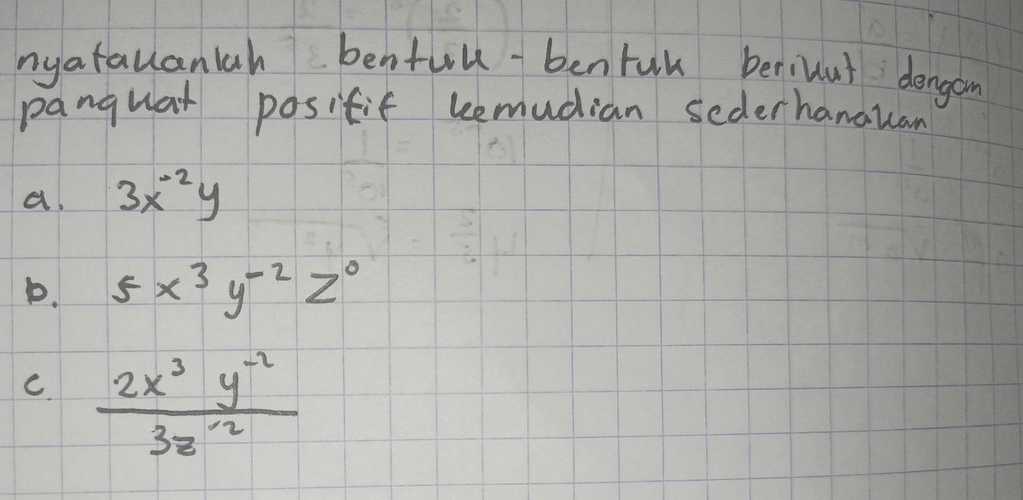 nyatakanlah bentuk - bentuk berikut dengan
pangkat positif kemudian sederhanakan
a. 3x⁻²y
b. 5x³y⁻²z⁰
c. 2x³ y⁻²
3z⁻²